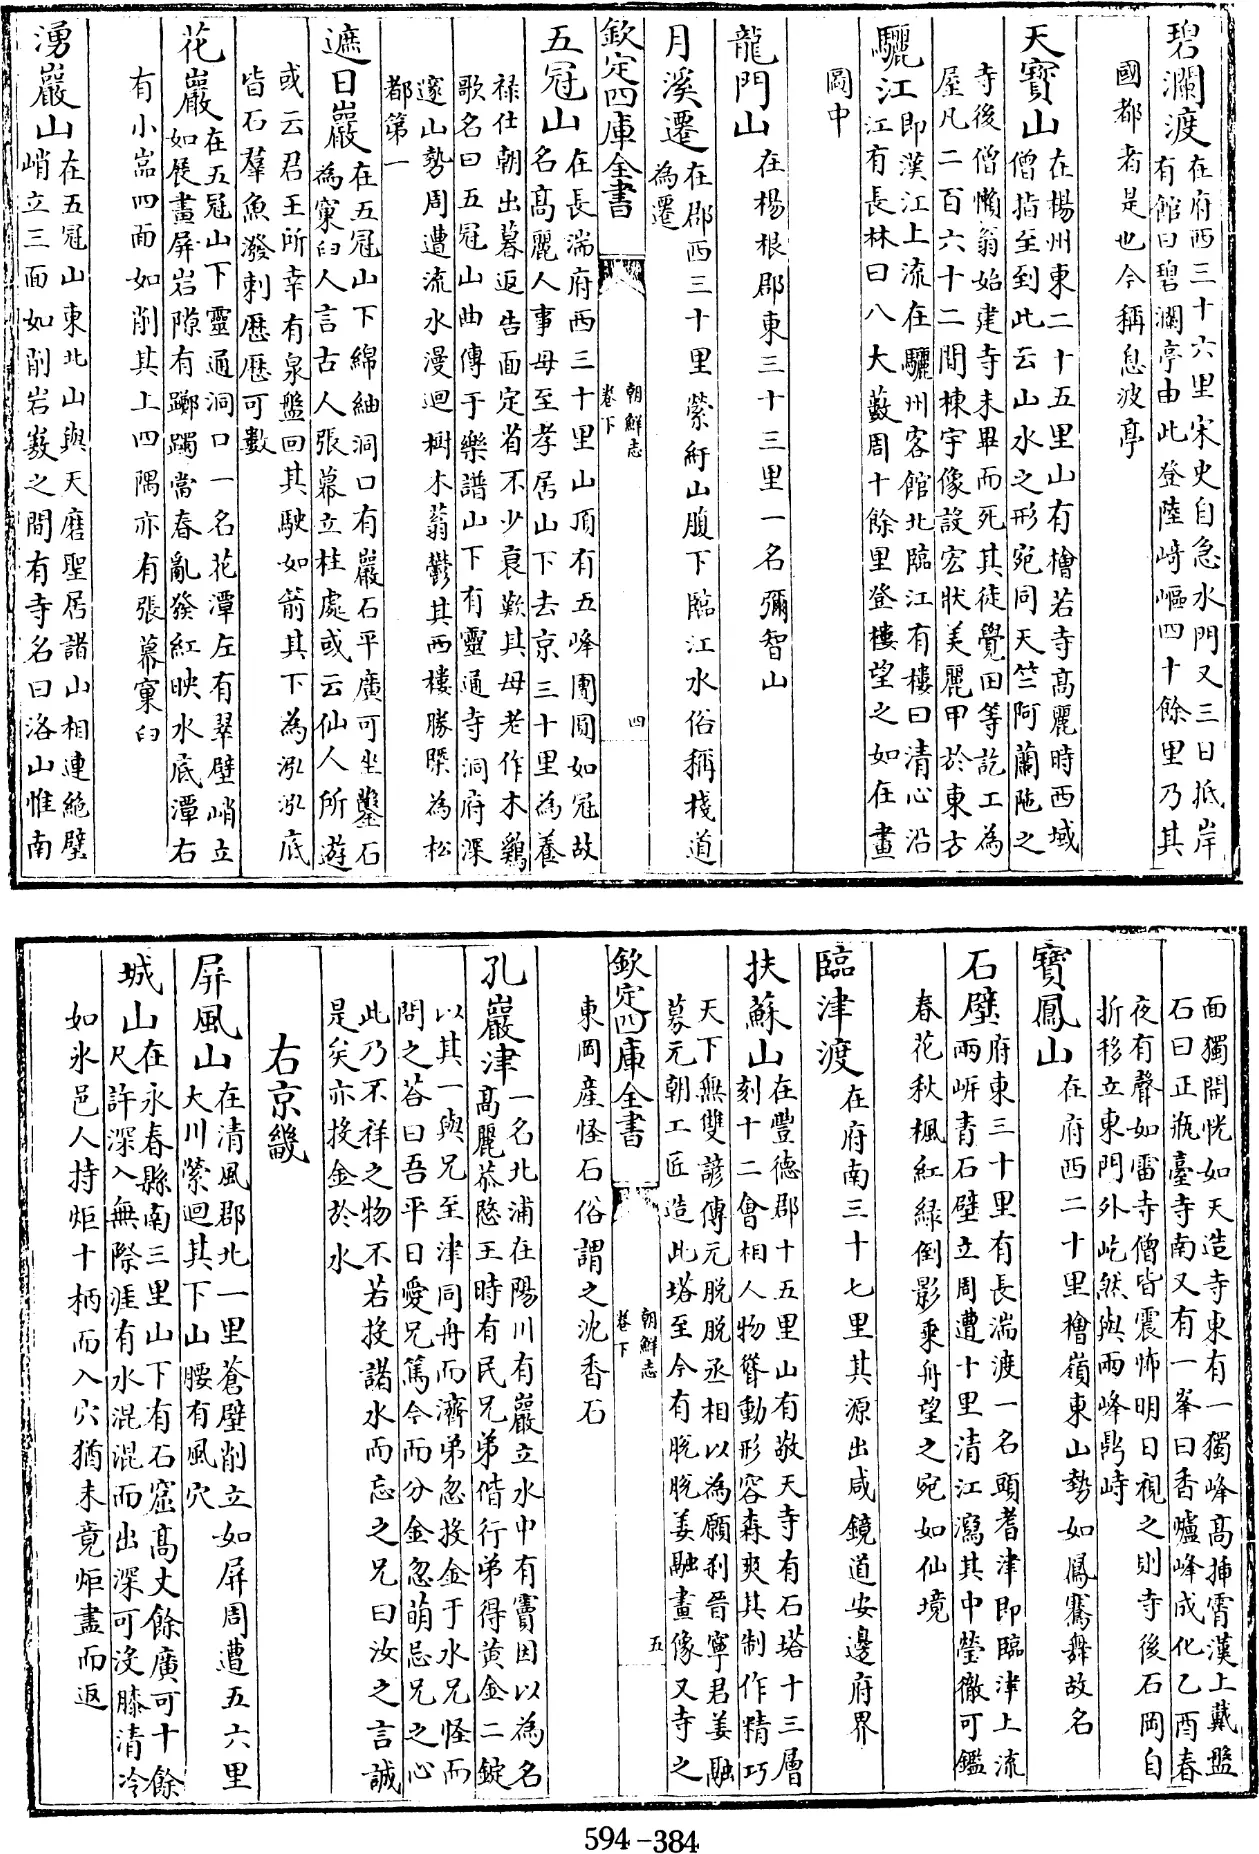 碧瀾渡在府西三十六里宋史自急水門又三日抵岸
有館曰碧瀾亭由此登陸崎嶇四十餘里乃其
國都者是也今稱息波亭
天寶山在楊州東二十五里山有檜若寺高麗時西域
僧指至到此云山水之形宛同天竺阿蘭陁之
寺後僧懶翁始建寺未畢而死其徒覺田等訖工為
屋凡二百六十二間棟宇像設宏狀美麗甲於東方
驪江即漢江上流在驪州客館北臨江有樓曰清心沿
江有長林曰八大藪周十餘里登樓望之如在畫
圖中
龍門山在楊根郡東三十三里一名彌智山
月溪遷在郡西三十里縈紆山腹下臨江水俗稱棧道
為遷
欽定四庫全書
朝鮮志
卷下
四
五冠山在長湍府西三十里山頂有五峰團圓如冠故
名高麗人事母至孝居山下去京三十里為養
祿仕朝出暮返告面定省不少衰歎其母老作木鷄
歌名曰五冠山曲傳于樂譜山下有靈通寺洞府深
邃山勢周遭流水漫迴樹木蓊鬱其西樓勝槩為松
都第一
遮日巖在五冠山下綿紬洞口有巖石平廣可坐鑿石
為窠臼人言古人張幕立柱處或云仙人所遊
或云君王所幸有泉盤回其駛如箭其下為泓泓底
皆石羣魚潑剌歷歷可數
花巖在五冠山下靈通洞口一名花潭左有翠壁峭立
如展畫屏岩隙有躑躅當春亂發紅映水底潭右
有小嵓四面如削其上四隅亦有張幕窠臼
湧巖山在五冠山東北山與天磨聖居諸山相連絶壁
峭立三面如削岩藪之間有寺名曰洛山惟南
面獨開恍如天造寺東有一獨峰高揷霄漢上戴盤
石曰正瓶臺寺南又有一峯曰香爐峰成化乙酉春
夜有聲如雷寺僧皆震怖明日視之則寺後石岡自
折移立東門外屹然與兩峰鼎峙
寶鳳山在府西二十里檜嶺東山勢如鳳騫舞故名
石壁府東三十里有長湍渡一名頭耆津即臨津上流
兩岍青石壁立周遭十里清江瀉其中瑩徹可鑑
春花秋楓紅緑倒影乘舟望之宛如仙境
臨津渡在府南三十七里其源出咸鏡道安邊府界
扶蘇山在豐德郡十五里山有敬天寺有石塔十三層
刻十二會相人物聳動形容森爽其制作精巧
天下無雙諺傳元脫脫丞相以為願刹晉寧君姜融
募元朝工匠造此塔至今有脫脫姜融畫像又寺之
欽定四庫全書
朝鮮志
卷下
五
東岡産怪石俗謂之沈香石
孔巖津一名北浦在陽川有巖立水中有竇因以為名
高麗恭愍王時有民兄弟偕行弟得黄金二錠
以其一與兄至津同舟而濟弟忽投金于水兄怪而
問之答曰吾平日愛兄篤今而分金忽萌忌兄之心
此乃不祥之物不若投諸水而忘之兄曰汝之言誠
是矣亦投金於水
右京畿
屏風山在清風郡北一里蒼壁削立如屏周遭五六里
大川縈迴其下山腰有風穴
城山在永春縣南三里山下有石窟高丈餘廣可十餘
尺許深入無際涯有水混混而出深可沒膝清冷
如氷邑人持炬十柄而入穴猶未竟炬盡而返
594-384